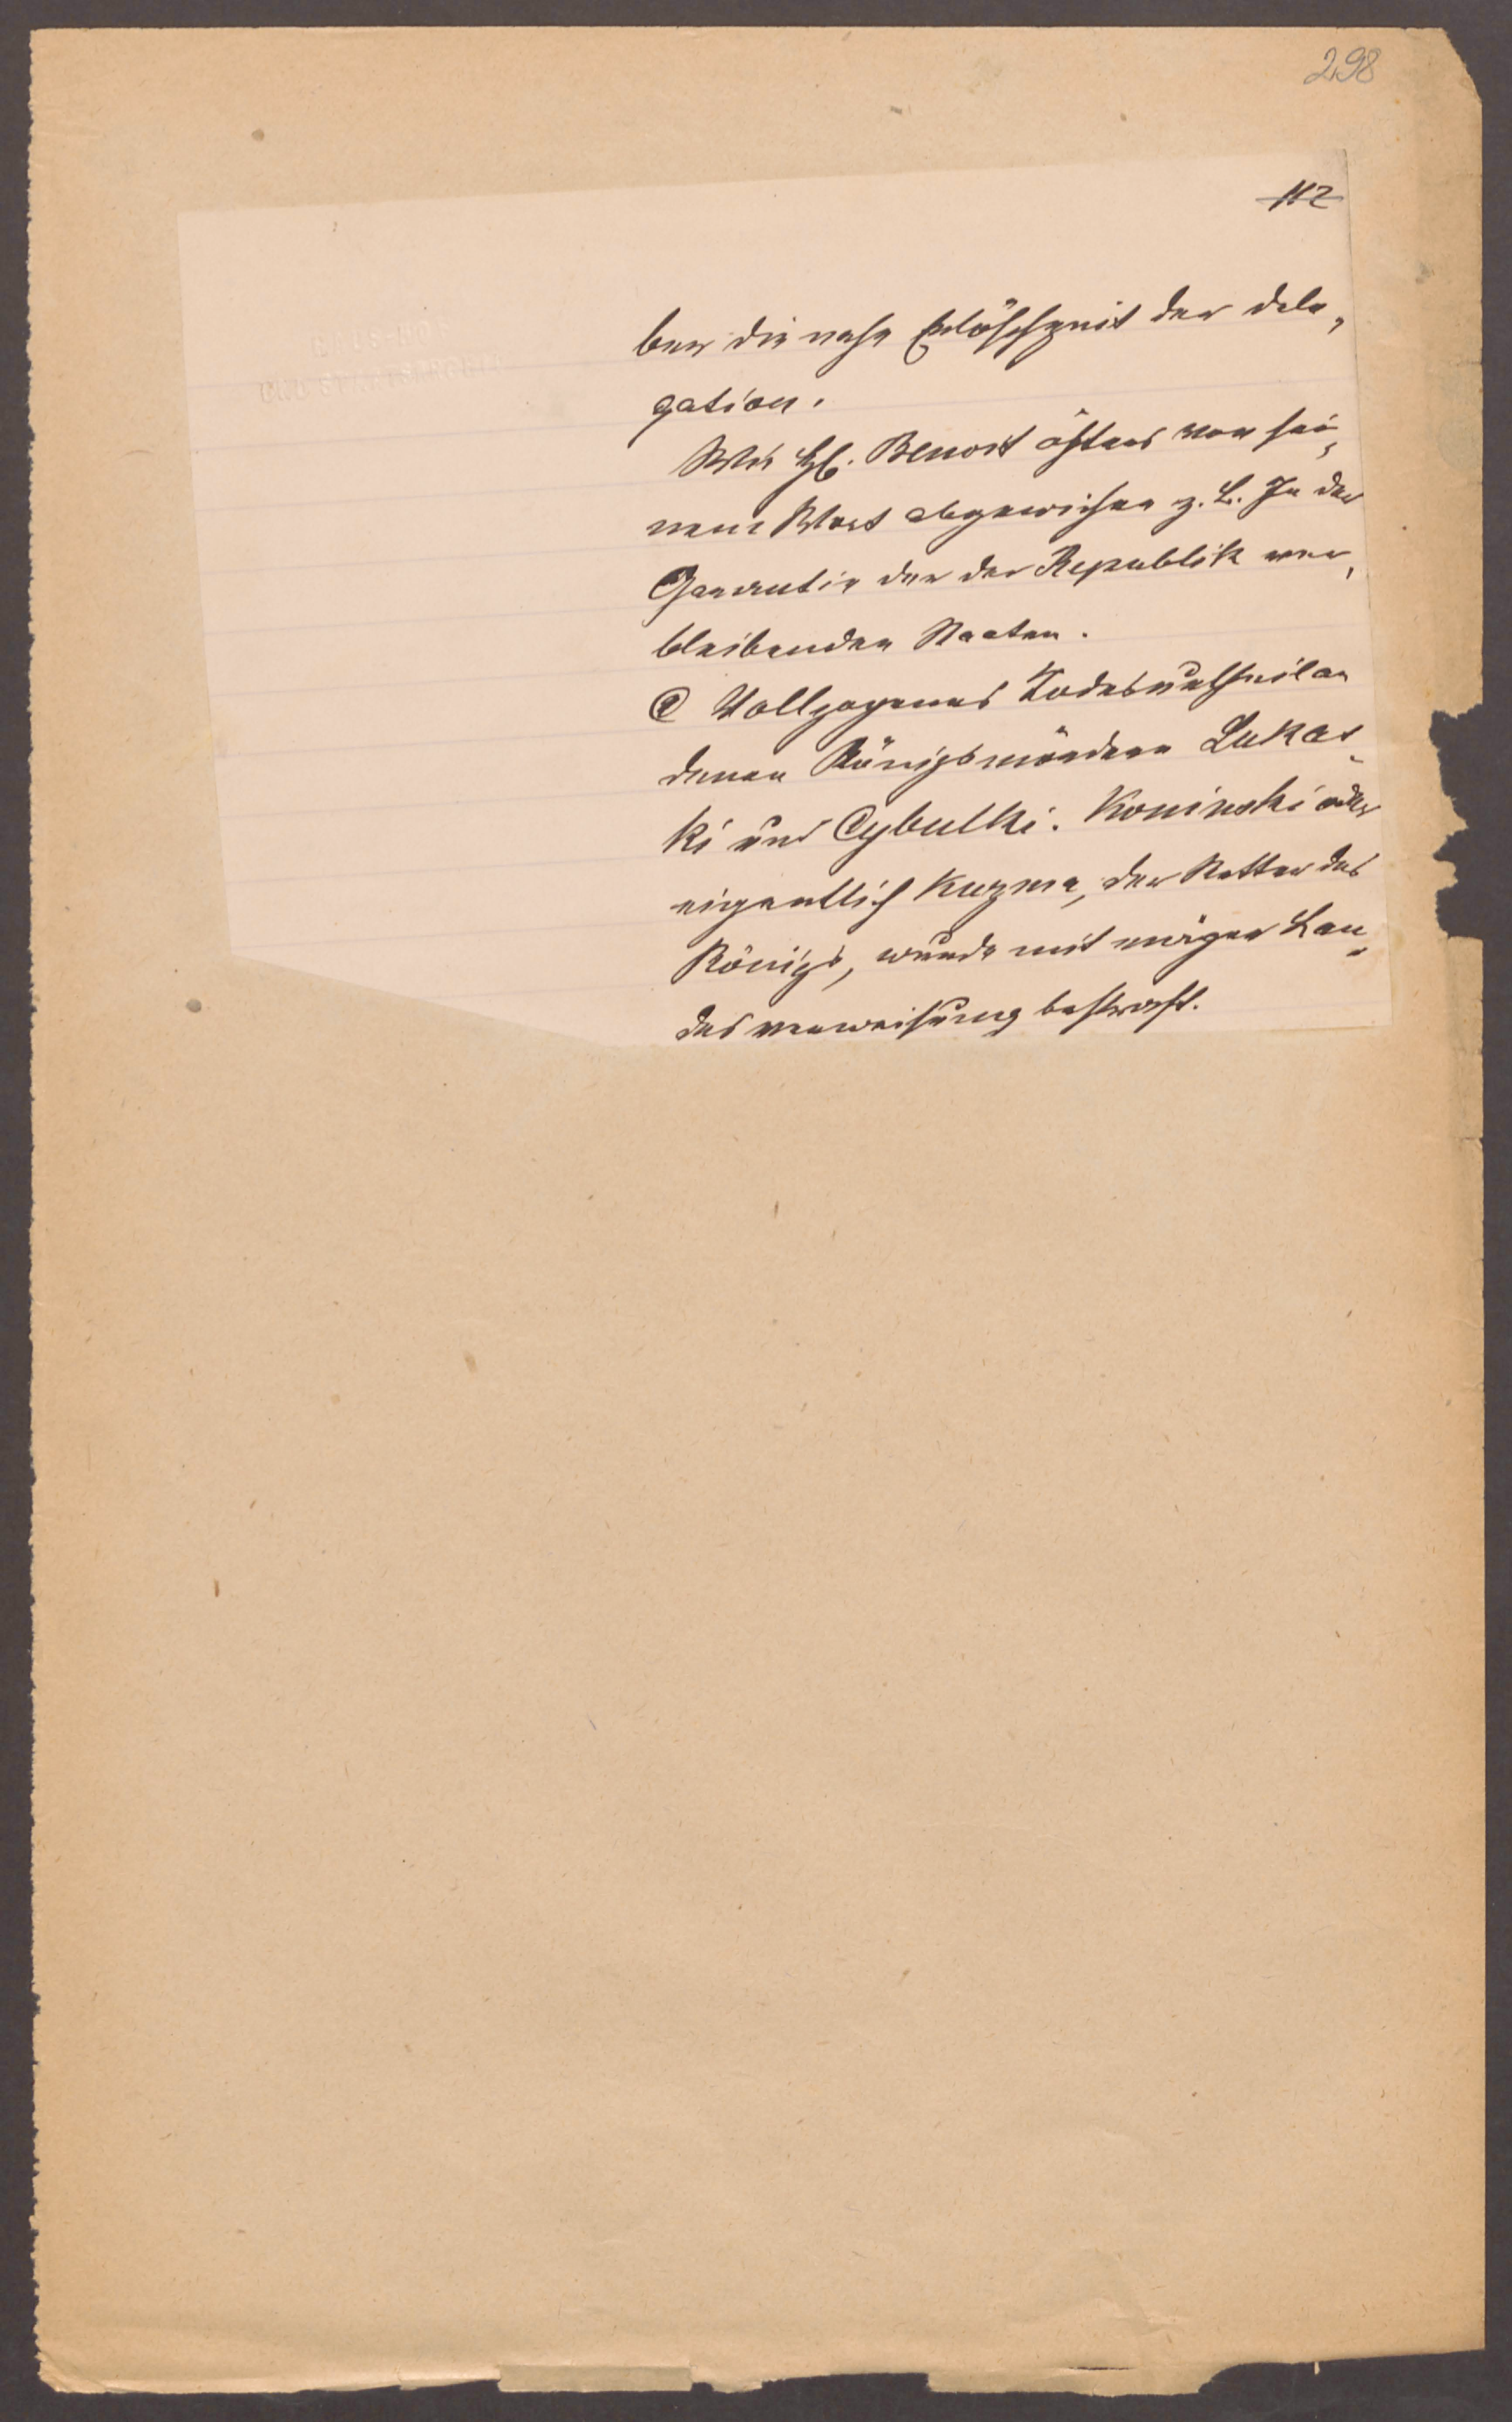 298
112
ber die nahe Erlöschzeit der Dele-
gation.
Wie H. Benoit öfters von sei-
nem Wort abgewichen z. B. In der
Garantie der der Republik ver-
bleibenden Staaten.
Vollzogenes Todesurtheil an
denen Königsmördern Lukas-
ki und Cybulki. Kosinski oder
eigentlich Kuzma, der Retter des
Königs, wurde mit ewiger Lan-
desverweisung bestraft.